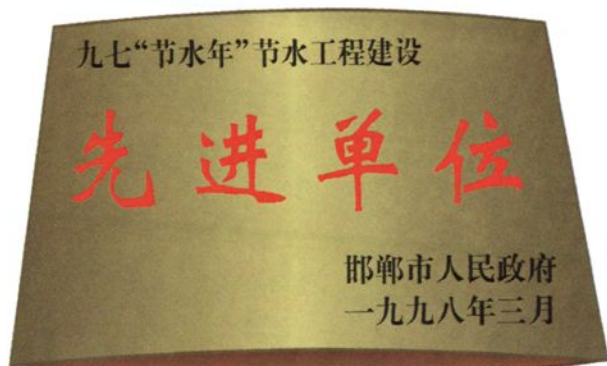 九七“节水年”节水工程建设
先进单位
邯郸市人民政府
一九九八年三月